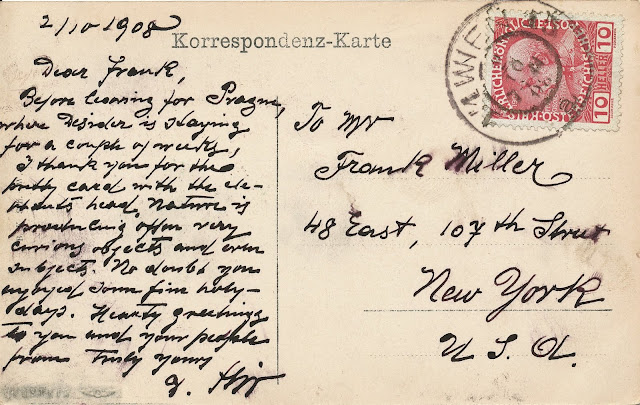 2/10 1908
Korrespondenz-Karte
Dear Frank,
Before leaving for Prague,
where Desider is staying
for a couple of weeks,
I thank you for the
pretty card with the ele-
phants head. Nature is
producing often very
curious objects and even
subjects. No doubt you
enjoyed some fine holy-
days. Hearty greetings
to you and your people
from Truly yours
To Mr
Frank Miller
48 East, 107th Street
New York
U.S.A.
10 10
HELLER